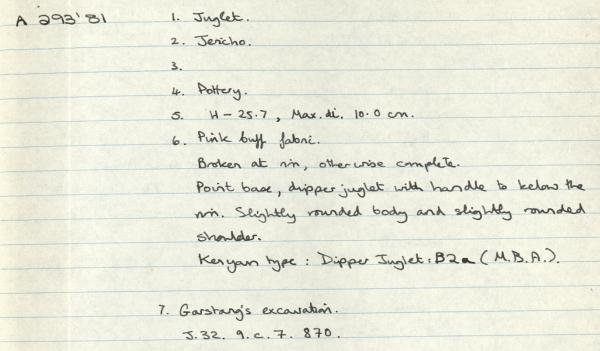 A 293'81 1. Juglet.
2. Jericho.
3.
4. Pottery.
5. H - 25.7, Max. di. 10.0 cm.
6. Pink buff fabric.
Broken at rim, otherwise complete.
Point base, dipper juglet with handle to below the
rim. Slightly rounded body and slightly rounded
shoulder.
Kenyan type: Dipper Juglet: B2a (M.B.A.).
7. Garstang's excavation.
J. 32. 9. c. 7. 870.